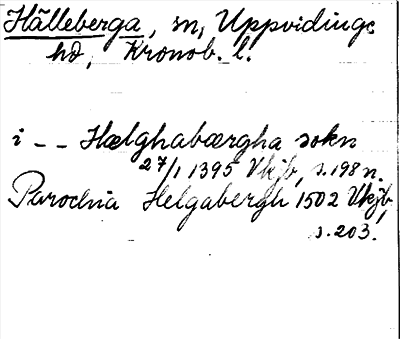 Hälleberga, sn, Uppvidinge
hd, Kronob. l.
i _ _ Hælghabærgha sokn
27/1 1395 Vkjb, s. 198 n.
Parochia Helgabergh 1502 Vkjb,
s. 203.